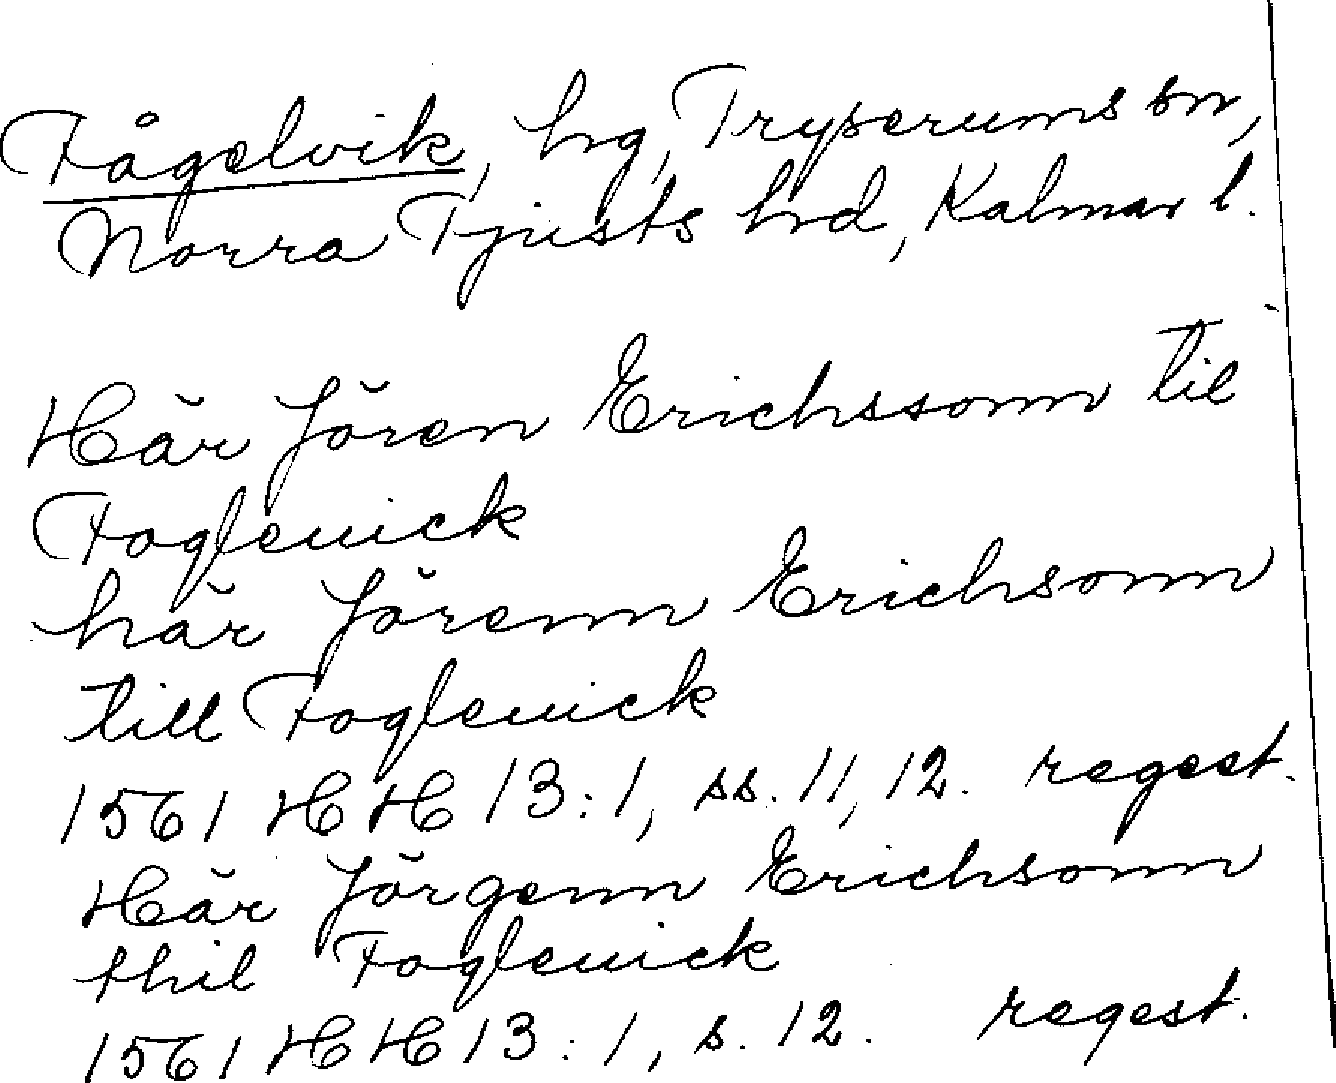 Fågelvik, hg, Tryserums sn,
Norra Tjusts hd, Kalmar l.
Här Jören Erichssonn til
Foglewick
här Jörenn Erichsonn
till Foglewick
1561 HH 13:1, ss. 11, 12. regest.
Här Jörgenn Erichsonn
thil Foglewick
1561 HH 13:1, s. 12. regest.